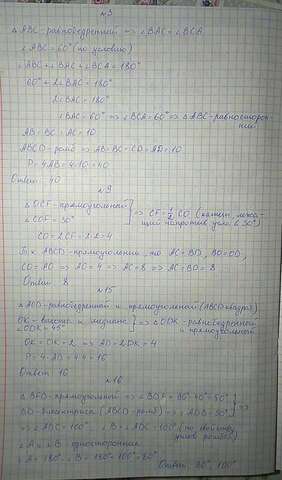 №3
△ABC-равнобедренный => ∠BAC=∠BCA
∠ABC=60° (по условию)
∠ABC+∠BAC+∠BCA=180°
60°+2∠BAC=180°
2∠BAC=180°
∠BAC=60° => ∠BCA=60° => △ABC-равносторон-
ний
AB=BC=AC=10
ABCD-ромб => AB=BC=CD=AD=10
P=4AB=4·10=40
Ответ: 40
№9
△OCF-прямоугольный
∠COF=30°
=> CF=1/2 CO (катет, лежа-
щий напротив угла в 30°)
CO=2CF=2·2=4
Т.к ABCD-прямоугольник, то AC=BD, BO=OD,
CO=AO => AO=4 => AC=8 => AC=BD=8
Ответ: 8
№15
△AOD-равнобедренный и прямоугольный (ABCD-квадрат)
OK-высота и медиана
∠ODK=45°
=> △ODK-равнобедренный
и прямоугольный
OK=DK=2 => AD=2DK=4
P=4·AD=4·4=16
Ответ: 16
№16
△BFD-прямоугольный => ∠BDF=90°-40°=50°
BD-биссектриса (ABCD-ромб) => ∠ADB=50°
=>
=> ∠ADC=100°, ∠B=∠ADC=100° (по свойству
углов ромба)
∠A и ∠B-односторонние
∠A=180°-∠B=180°-100°=80°
Ответ: 80°, 100°